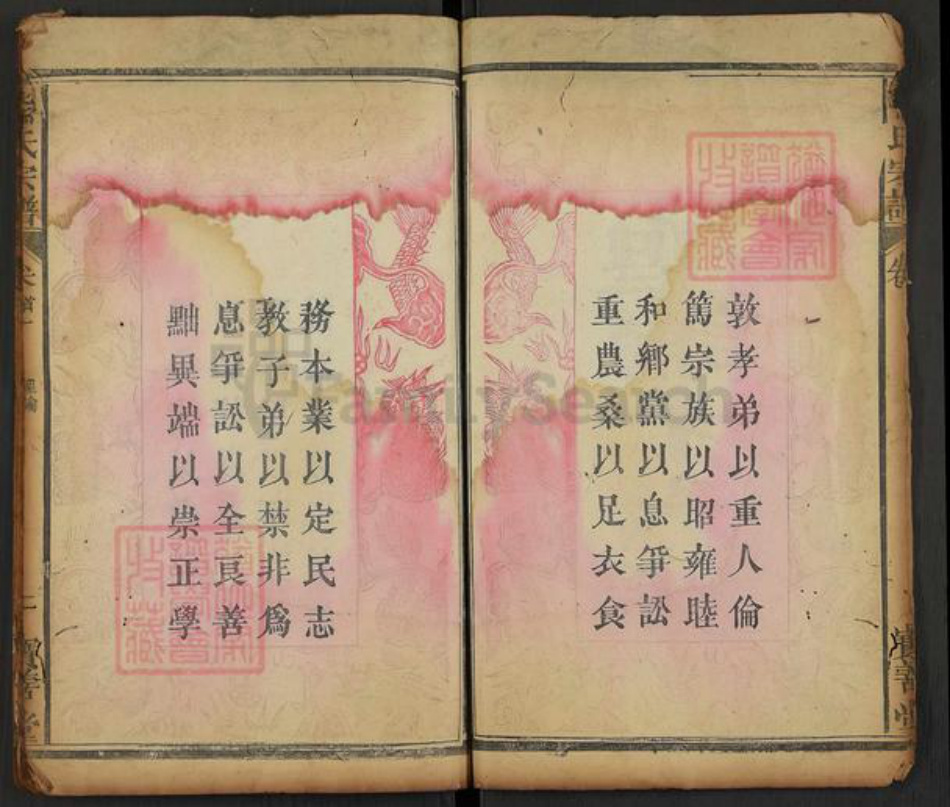 敦孝弟以重人倫
篤宗族以昭雍睦
和鄉黨以息爭訟
重農桑以足衣食
務本業以定民志
教子弟以禁非爲
息爭訟以全良善
黜異端以崇正學
氏宗譜
卷
氏宗譜
卷首一
善堂
善堂
FamilySearch